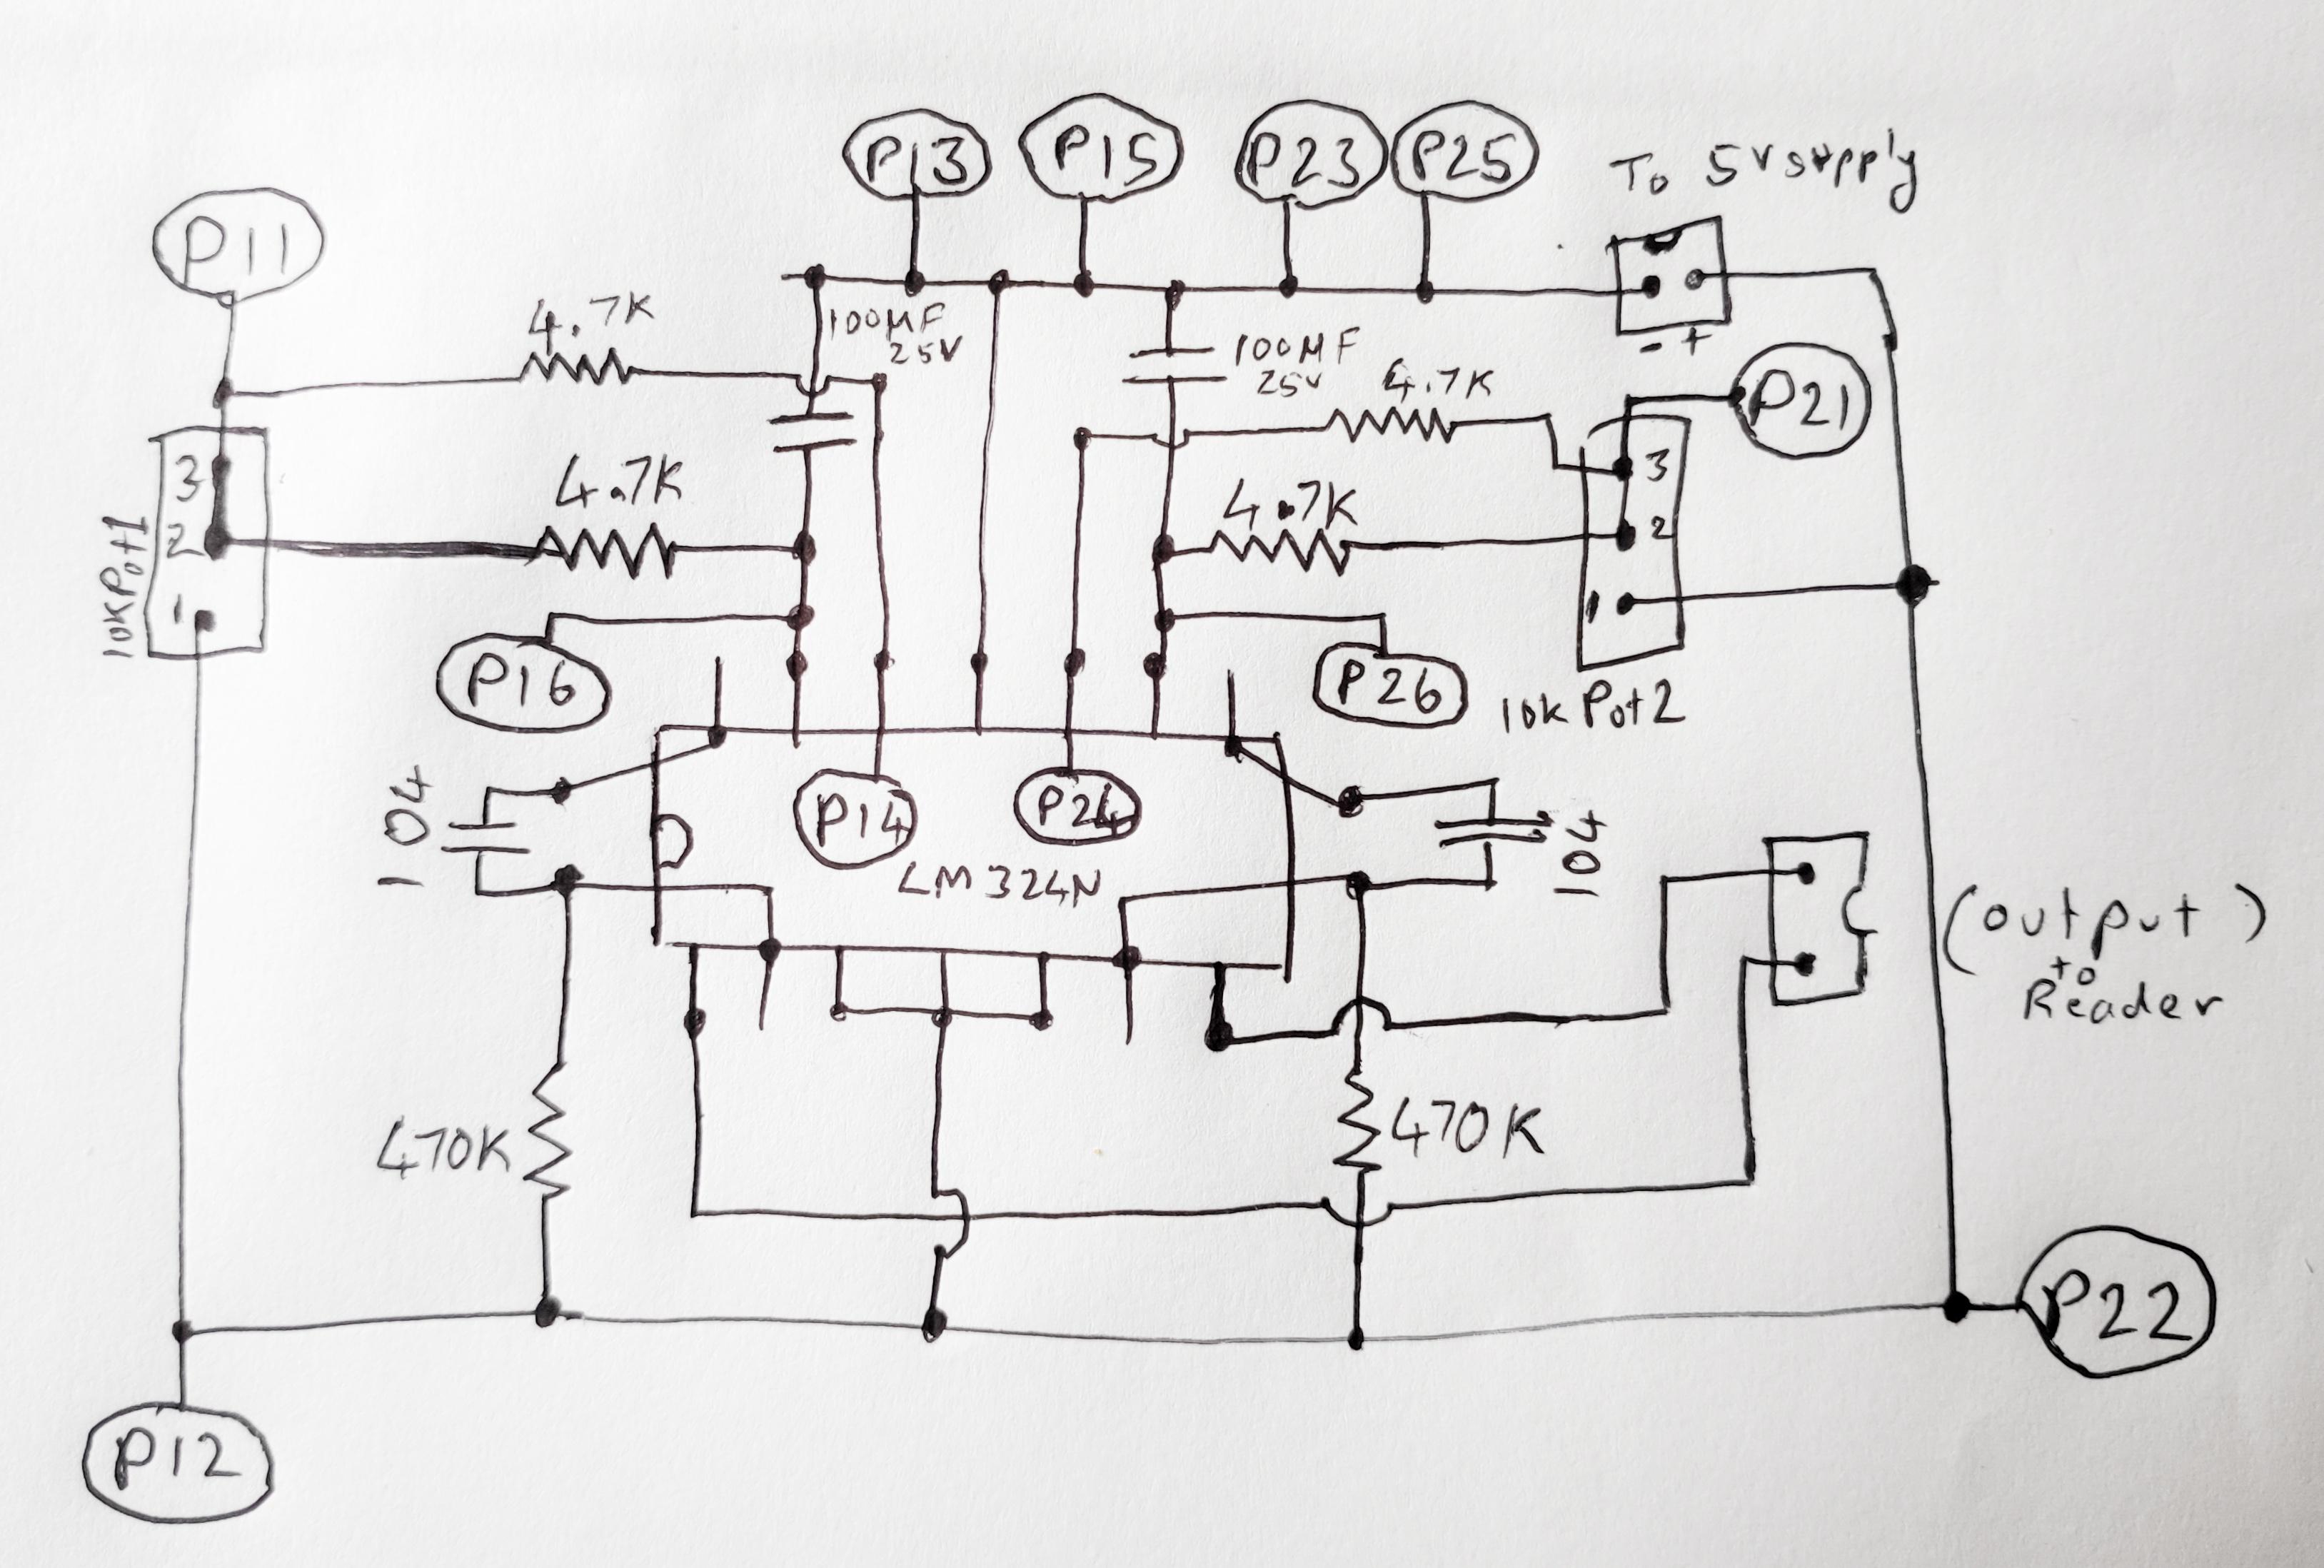 P13
P15
P23
P25
To 5v supply
P11
4.7K
100MF
25V
- +
100MF
25V
4.7K
P21
3
4.7K
3
4.7K
2
2
10KPot1
1
1
P16
P26
10k Pot2
104
P14
P24
LM324N
104
(output)
to
Reader
470K
470K
P22
P12